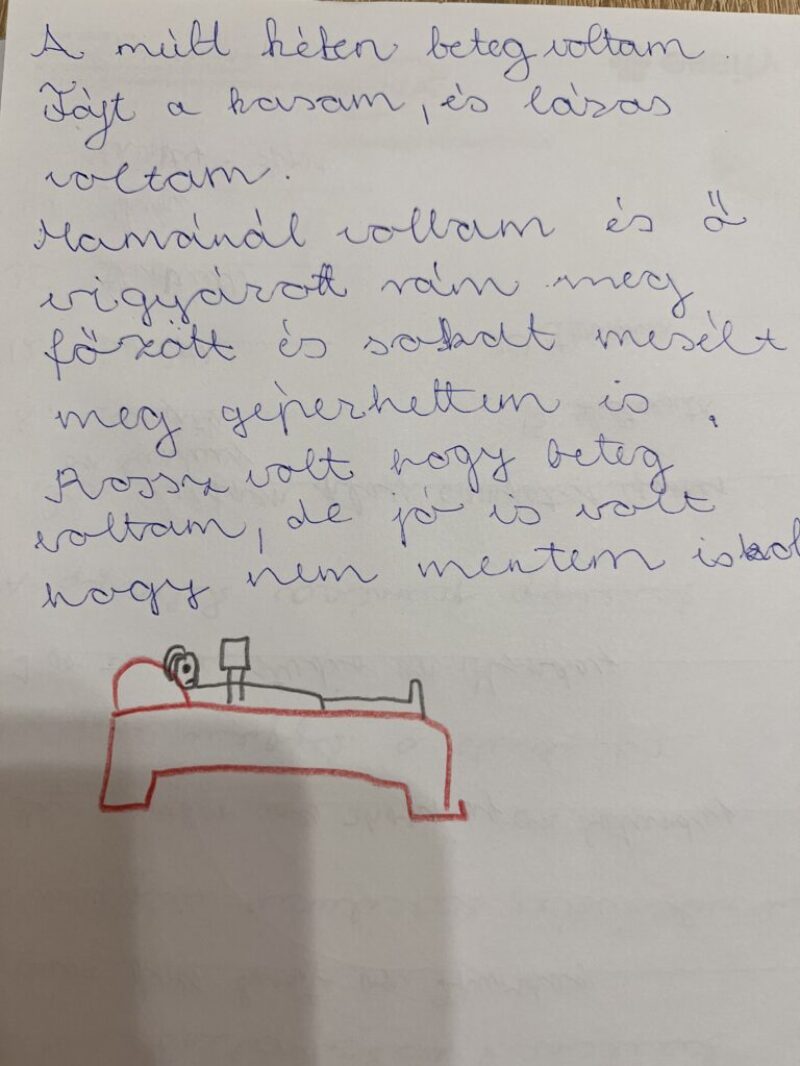 A múlt héten beteg voltam.
Fájt a hasam, és lázas
voltam.
Mamánál voltam és ő
vigyázott rám meg
főzött és sokat mesélt
meg gépezhettem is.
Rossz volt hogy beteg
voltam, de jó is volt
hogy nem mentem iskol